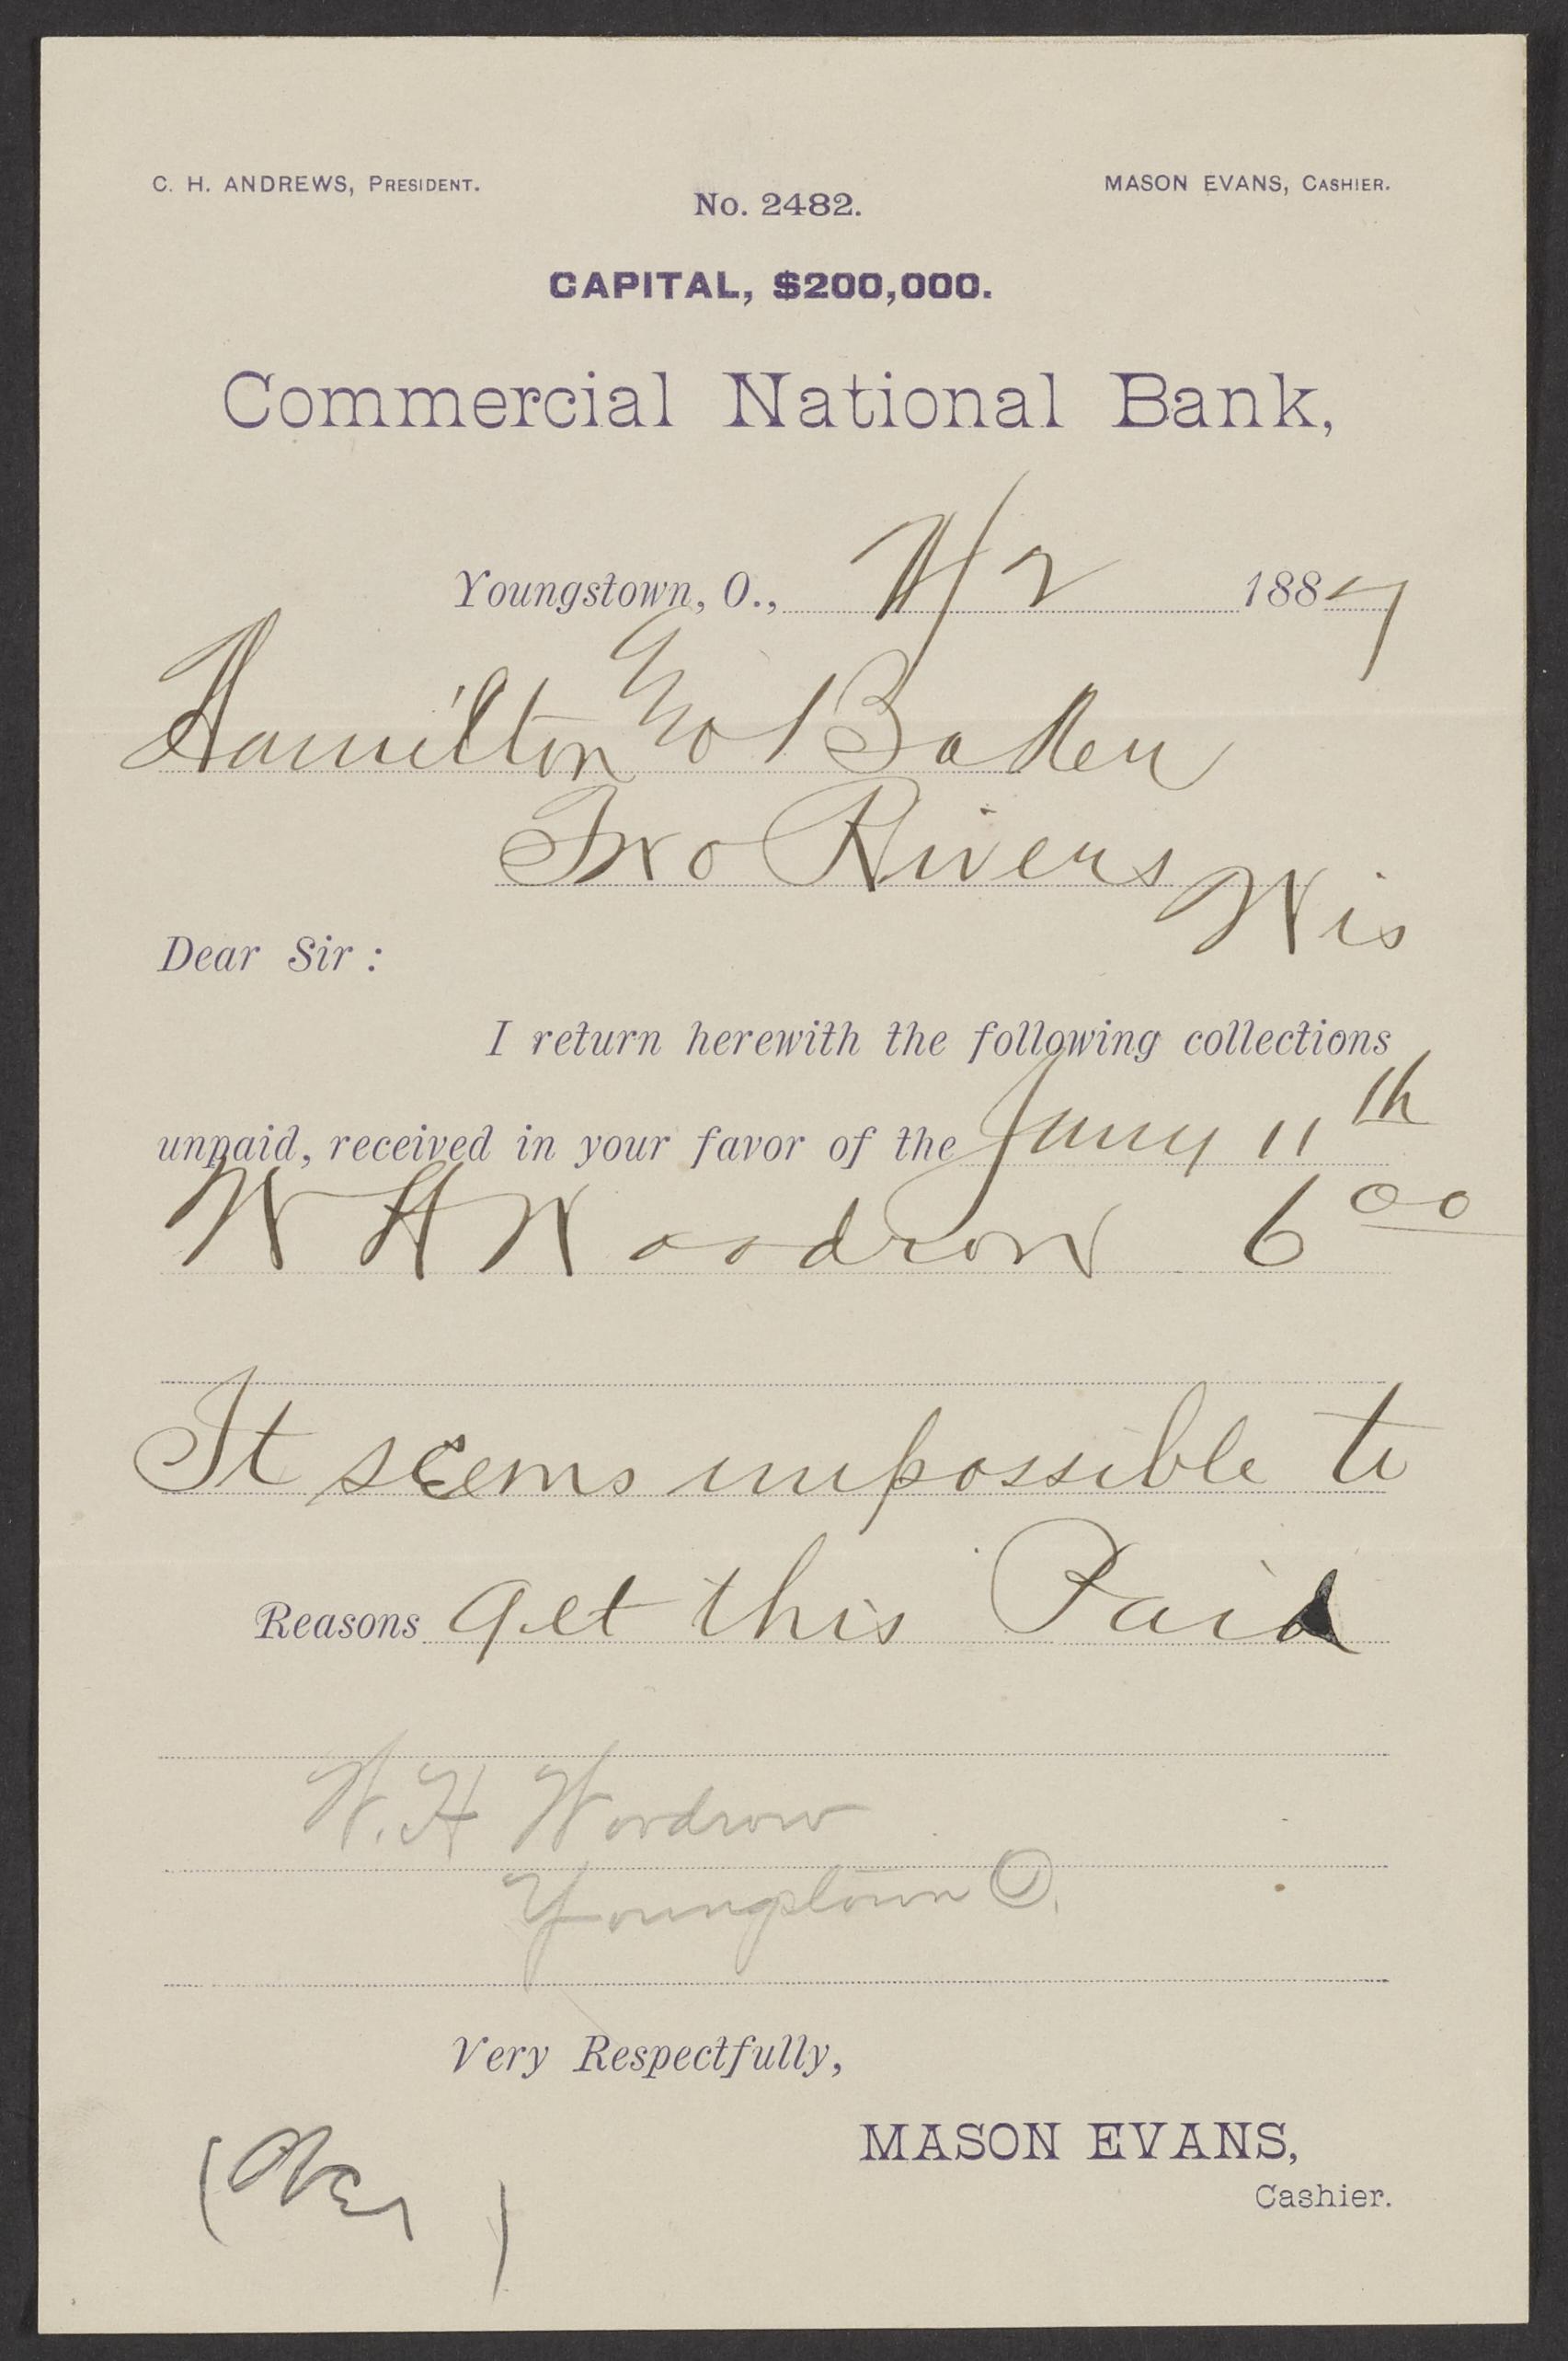 C. H. ANDREWS, PRESIDENT.
MASON EVANS, CASHIER.
No. 2482.
CAPITAL, $200,000.
Commercial National Bank,
Youngstown, O., 2 1887
Hamilton & Baker
Two Rivers Wis
Dear Sir :
I return herewith the following collections
unpaid, received in your favor of the Jany 11th
W H Woodrow 6 00
It seems impossible to
Reasons get this Paid
W. H Woodrow
Youngstown O.
Very Respectfully,
MASON EVANS,
Cashier.
(Over)